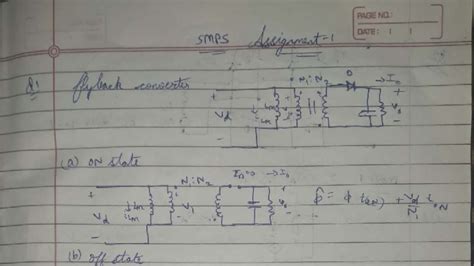 PAGE NO.:
DATE: / /
SMPS Assignment-1
Q1 flyback converter
N1:N2 D → Io
+ Vd - Lm + Vo -
(a) ON state
N1:N2 ID=0 → Io
+ Vd - Lm im V1 + Vo -
(b) off state